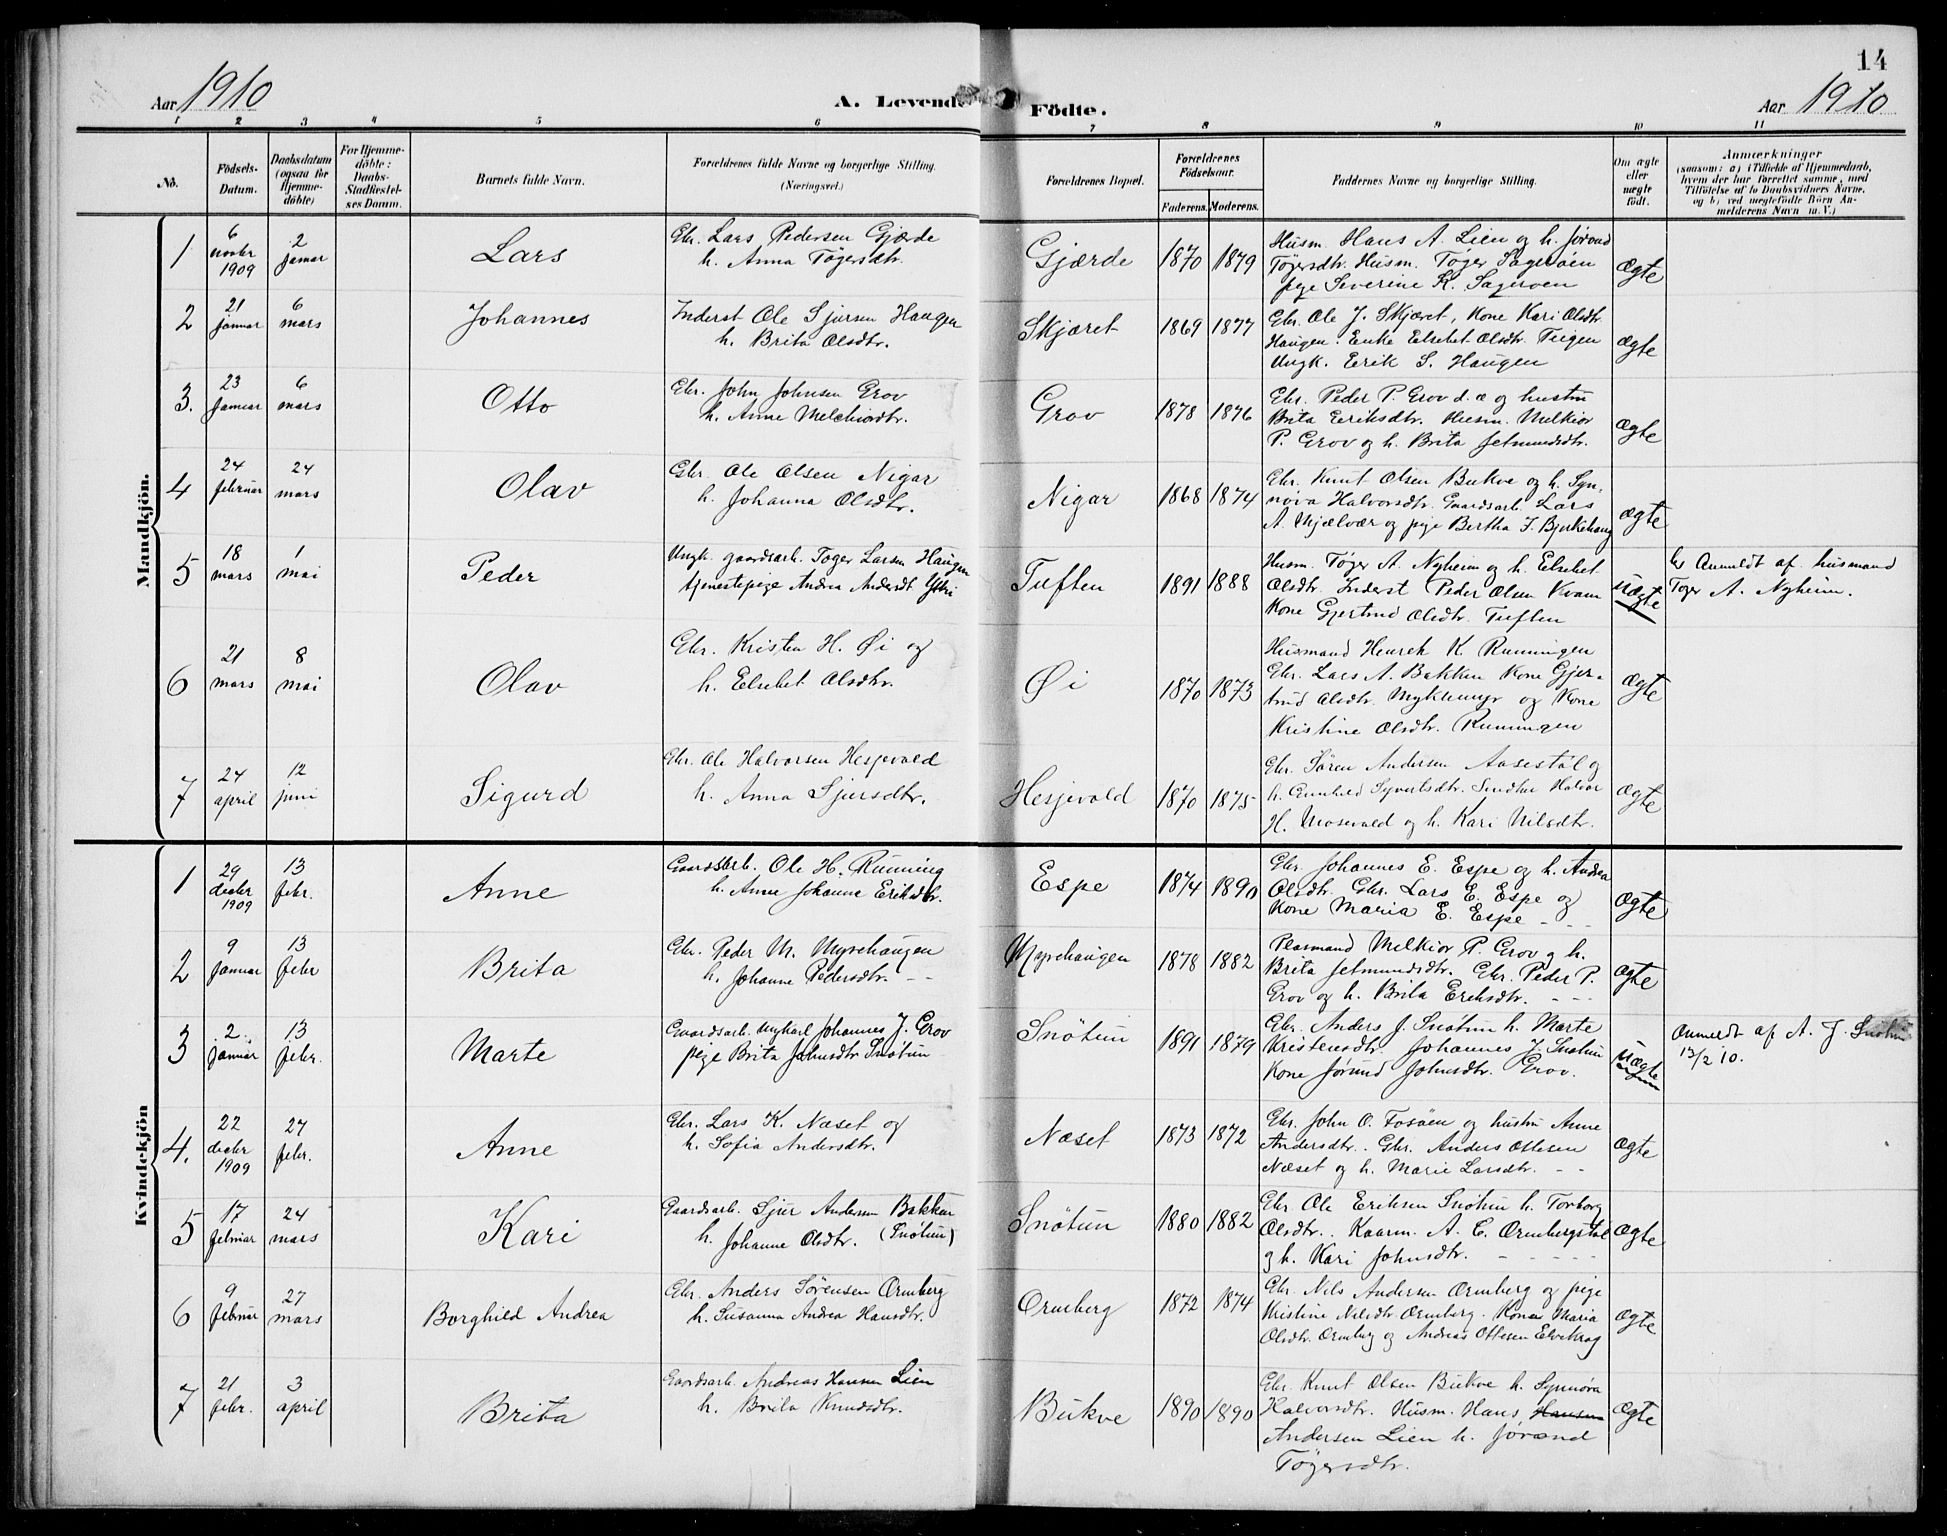 14
Aar 1910 A. Levende Födte. Aar 1910
1 2 3 4 5 6 7 8 9 10 11
No.
Födsels-
Datum.
Daabsdatum
(ogsaa for
Hjemme-
döbte)
For Hjemme-
döbte:
Daabs-
Stadfæstel-
ses Datum.
Barnets fulde Navn.
Forældrenes fulde Navne og borgerlige Stilling.
(Næringsvei.)
Forældrenes Bopæl.
Forældrenes
Födselsaar.
Faderens. Moderens.
Faddernes Navne og borgerlige Stilling.
Om ægte
eller
uægte
födt.
Anmærkninger
(saasom: a) i Tilfælde af Hjemmedaab,
hvem der har forrettet samme, med
Tilföielse af to Daabsvidners Navne,
og b) ved uægtefödte Börn An-
melderens Navn m. V.)
Mandkjön.
1
6
novbr
1909
2
januar
Lars
Gbr. Lars Pedersen Gjærde
h. Anna Tøgersdtr.
Gjærde
1870 1879
Husm. Hans A. Lien og h. Jørand
Tøgersdtr. Husm. Tøger Sagerøen
pige Severine K. Sagerøen
ægte
2
21
januar
6
mars
Johannes
Inderst Ole Sjursen Haugen
h. Brita Olsdtr.
Skjæret
1869 1877
Gbr. Ole J. Skjæret, Kone Kari Olsdtr.
Haugen. Enke Elsebet Olsdtr. Teigen
Ungk. Erik S. Haugen
ægte
3.
23
januar
6
mars
Otto
Gbr. John Johnsen Grov
h. Anne Melchiordtr.
Grov
1878 1876
Gbr. Peder P. Grov d. æ og hustru
Brita Eriksdtr. Husm. Melkior
P. Grov og h. Brita Jetmundsdtr.
ægte
4
24
februar
24
mars
Olav
Gbr. Ole Olsen Nigar
h. Johanna Olsdtr.
Nigar
1868 1874
Gbr. Knut Olsen Bukve og h. Syn-
nøva Halvorsdtr. Gaardsarb. Lars
A. Mjælvær og pige Bertha J. Bjørkehaug
ægte
5
18
mars
1
mai
Peder
Ungk. gaardsarb. Toger Larsen Haugen
tjenestepige Andrea Andersdt. Ytri
Tuften
1891 1888
Husm. Tøger A. Nyheim og h. Elsebet
Olsdtr. Inderst Peder Olsen Kvam
Kone Gjertrud Olsdtr. Tuften
uægte
Anmeldt af husmand
Toger A. Nyheim.
6
21
mars
8
mai
Olav
Gbr. Kristen H. Øi og
h. Elsebet Olsdtr.
Øi
1870 1873
Husmand Henrek K. Runningen
Gbr. Lars A. Bakken Kone Gjer-
trud Olsdtr. Myklemyr og Kone
Kristine Olsdtr. Runningen
ægte
7
24
april
12
juni
Sigurd
Gbr. Ole Halvorsen Hesjevold
h. Anna Sjursdtr.
Hesjevold
1870 1875
Gbr. Søren Andersen Aasestøl og
h. Syvertsdtr. Halvor
H. Mosevold og h. Kari Nilsdtr.
ægte
Kvindekjön
1
29
decbr
1909
13
febr.
Anne
Gaardsarb. Ole H. Running
h. Anne Johanne Eriksdtr.
Espe
1874 1890
Gbr. Johannes E. Espe og h. Andrea
Olsdtr. Gbr. Lars E. Espe og
Kone Maria E. Espe - - -
ægte
2
9
januar
13
febr
Brita
Gbr. Peder M. Myrehaugen
h. Johanne Pedersdtr. - -
Myrehaugen
1878 1882
Plasmand Melkior P. Grov og h.
Brita Jetmundsdtr. Gbr. Peder P.
Grov og h. Brita Eriksdtr. - - -
ægte
3
2
januar
13
febr.
Marte
Gaardsarb. ungkarl Johannes J. Grov
pige Brita Johnsdtr Snøtun
Snøtun
1891 1879
Gbr. Anders J. Snøtun h. Marte
Kristensdtr. Johannes J Snøtun
Kone Jørand Johnsdtr. Grov.
uægte
Anmeldt af A. J. Snøtun
13/2 10.
4.
22
decbr
1909
27
febr.
Anne
Gbr. Lars K. Næset og
h. Sofia Andersdtr.
Næset
1873 1872
Gbr. John O. Fosøen og hustru Anne
Andersdtr. Gbr. Anders Ottesen
Næset og h. Marie Larsdtr. - -
ægte
5
17
februar
24
mars
Kari
Gaardsarb. Sjur Andersen Bakken
h. Johanne Olsdtr. (Snøtun)
Snøtun
1880 1882
Gbr Ole Eriksen Snøtun h. Torborg
Olsdtr. Kaarm. A. C. Ormbergstøl
og h. Kari Johnsdtr. - - - -
ægte
6
9
februar
27
mars
Borghild Andrea
Gbr. Anders Sørensen Ormberg
h. Susanna Andrea Hansdtr.
Ormberg
1872 1874
Gbr. Nils Andersen Ormberg og pige
Kristine Nilsdtr. Ormberg. Kone Maria
Olsdtr. Ormberg og Andreas Ottesen Elvekrog
ægte
7
21
febr.
3
april
Brita
Gaardsarb. Andreas Hansen Lien
h. Brita Knudsdtr.
Bukve
1890 1890
Gbr. Knut Olsen Bukve h. Synnøva
Halvorsdtr. Husm. Hans Hansen
Andersen Lien h. Jørand
Tøgersdtr.
ægte